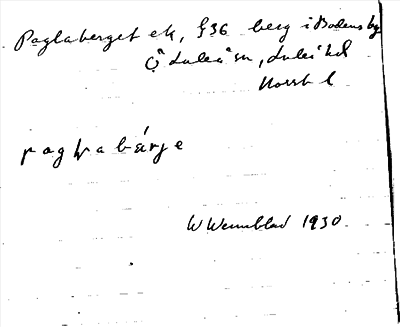 Paglaberget ek, § 36 berg i Bodens by
Ö Luleå sn, Luleå hd
Norrb l
paghabárje
W Wennblad 1930